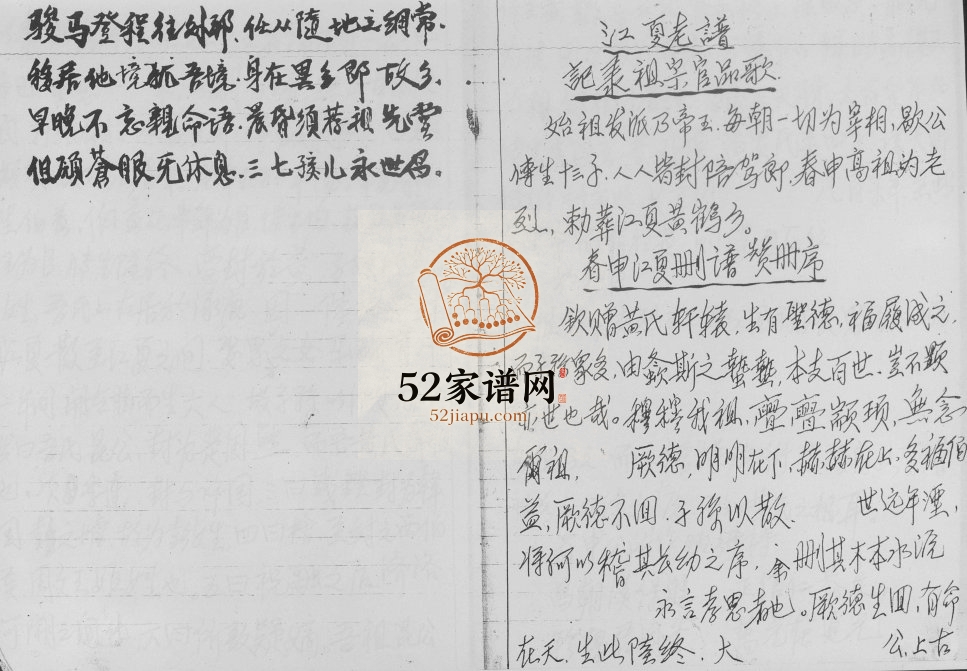 骏马登程往外邦.任从随地立纲常.
移居他境犹吾境.身在异乡即故乡
早晚不忘亲命语.晨昏须荐祖先堂
但愿苍天休息.三七孩儿永世昌。
江夏老譜
記录祖宗官品歌
始祖发派乃帝王.每朝一切为宰相.歇公
傳生十三子.人人皆封陪驾郎.春申高祖为老
烈.勅葬江夏黄鹤乡。
春申江夏删谱赞册序
钦赠黄氏轩辕.生有聖德.福履成之.
而子孫众多.由螽斯之蟄蟄.本支百世.岂不顕
亦世也哉。穆穆我祖.亹亹顓頊.無念
爾祖. 厥德.明明在下.赫赫在上.多福自
益.厥德不回.子孫以散. 世远年湮,
将何以稽其长幼之序.余删其木本水流
永言孝思者也。厥德生回.有命
在天.生此陸终.大 公.上古
52家谱网
52jiapu.com